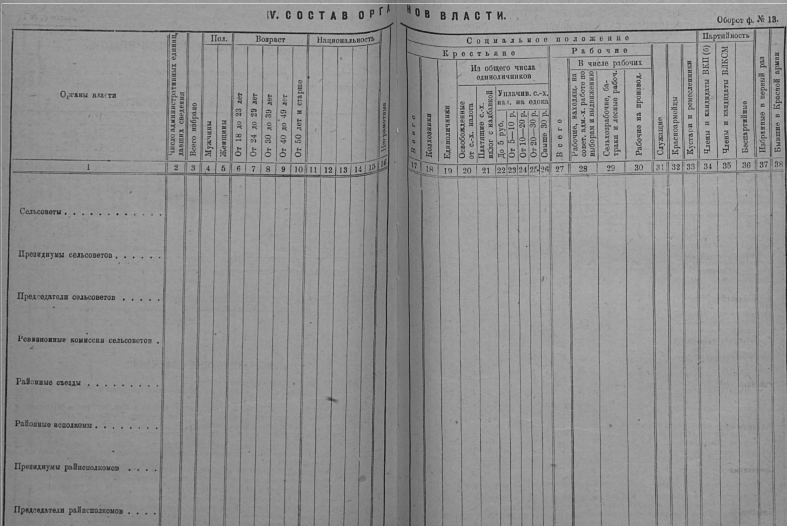 IV. СОСТАВ ОРГАНОВ ВЛАСТИ.
Оборот ф. № 13.
Органы власти
Число административных единиц,
давших сведения
Всего избрано
Пол.
Мужчины
Женщины
Возраст
От 18 до 23 лет
От 24 до 29 лет
От 30 до 39 лет
От 40 до 49 лет
От 50 лет и старше
Национальность
Неграмотные
Социальное положение
Крестьяне
Всего
Колхозники
Единоличники
Из общего числа
единоличников
Освобожденные
от с.-х. налога
Платящие с.-х.
налог с надбавкой
Уплачив. с.-х.
нал. на едока
До 5 руб.
От 5—10 р.
От 10—20 р.
От 20—30 р.
Свыше 30 р.
Рабочие
Всего
В числе рабочих
Рабочие, находящ. на
совет. адм.-х. работе по
выборам и выдвижению
Сельхозрабочие, ба-
траки и лесные рабоч.
Рабочие на производ.
Служащие
Красноармейцы
Кустари и ремесленники
Партийность
Члены и кандидаты ВКП (б)
Члены и кандидаты ВЛКСМ
Беспартийные
Избранные в первый раз
Бывшие в Красной армии
1 2 3 4 5 6 7 8 9 10 11 12 13 14 15 16 17 18 19 20 21 22 23 24 25 26 27 28 29 30 31 32 33 34 35 36 37 38
Сельсоветы . . . . . . . . . . . .
Президиумы сельсоветов . . . . . .
Председатели сельсоветов . . . . .
Ревизионные комиссии сельсоветов .
Районные съезды . . . . . . . . .
Районные исполкомы . . . . . . . .
Президиумы райисполкомов . . . .
Председатели райисполкомов . . . .